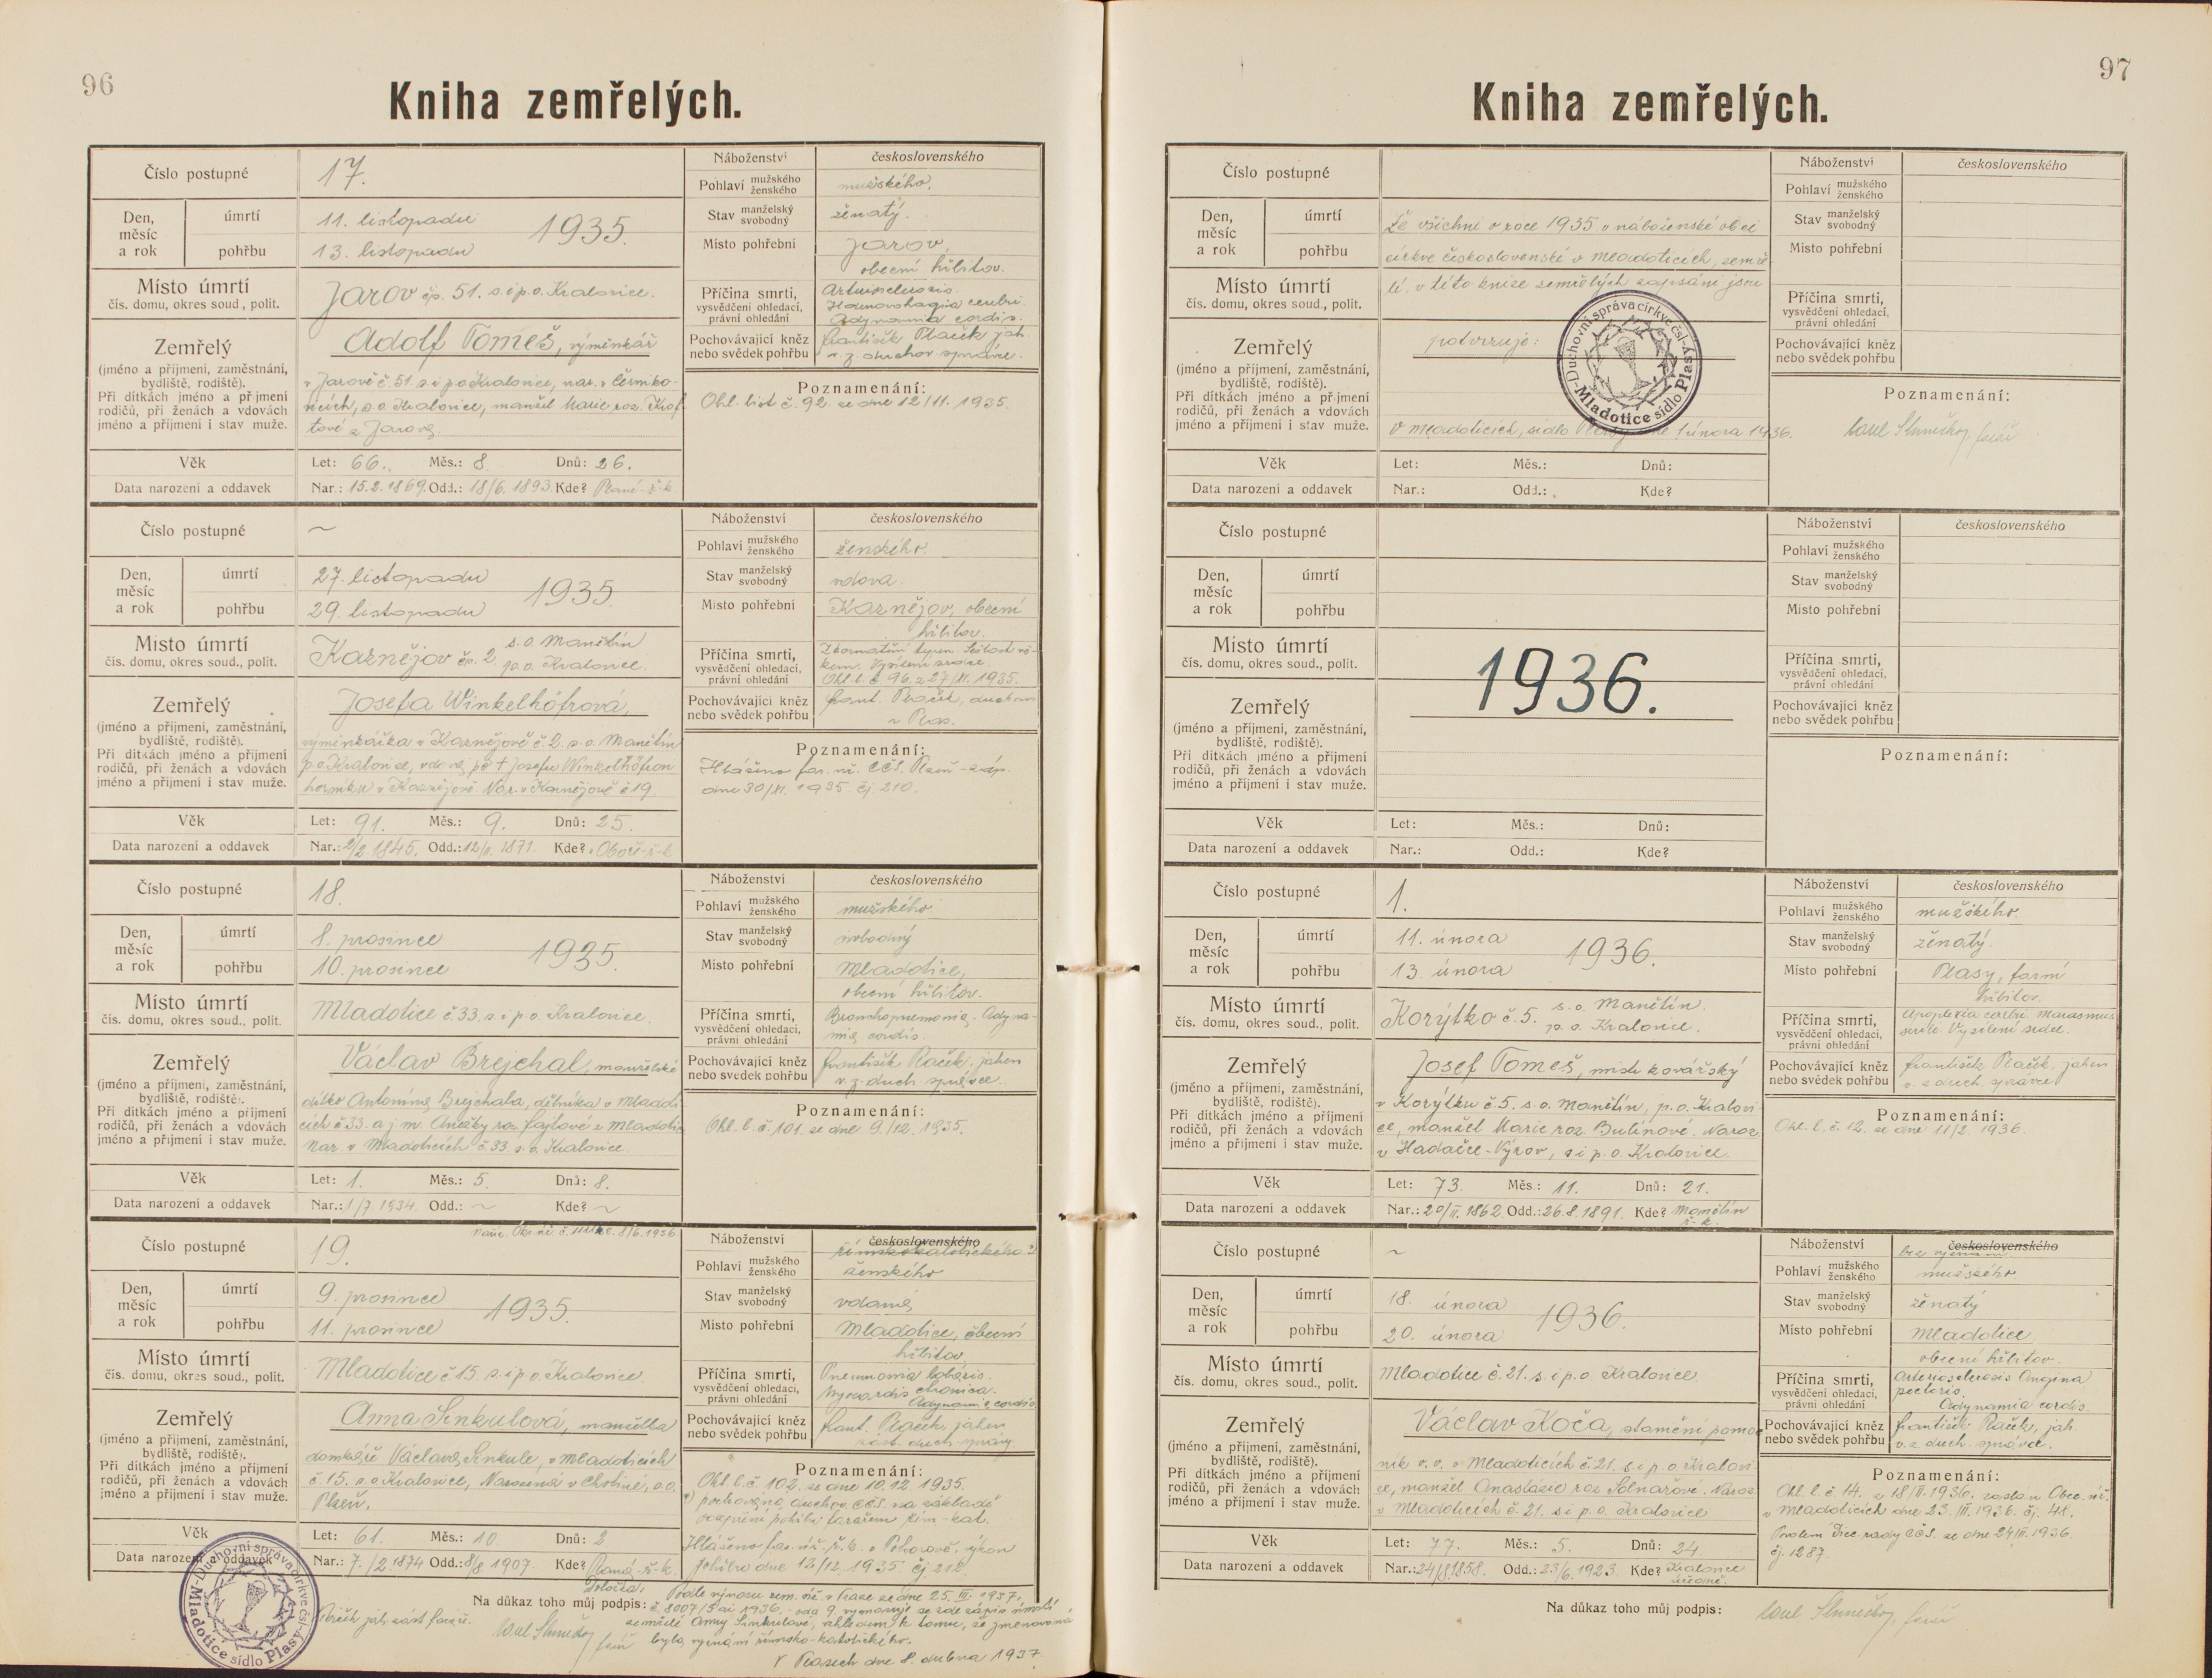 96
Kniha zemřelých.
Číslo postupné
17.
Náboženství
československého
Pohlaví mužského ženského
mužského.
Den, měsíc a rok
úmrtí
11. listopadu
1935.
pohřbu
13. listopadu
Stav manželský svobodný
ženatý.
Místo pohřební
Jarov,
obecní hřbitov.
Místo úmrtí
čís. domu, okres soud., polit.
Jarov čp. 51. s. i p. o. Kralovice.
Příčina smrti,
vysvědčení ohledací,
právní ohledání
Adynamia cordis.
Zemřelý
(jméno a příjmení, zaměstnání,
bydliště, rodiště).
Při dítkách jméno a příjmení
rodičů, při ženách a vdovách
jméno a příjmení i stav muže.
Adolf Tomeš, výměnkář
v Jarově č. 51. s. i p. o. Kralovice, nar. v
s. o. Kralovice, manžel Marie roz.
z Jarova.
Pochovávající kněz
nebo svědek pohřbu
František Ptaček jah.
v. z. duchov. správce.
Poznamenání:
Ohl. list č. 92. ze dne 12/11. 1935.
Věk
Let: 66. Měs.: 8. Dnů: 26.
Data narození a oddavek
Nar.: 15.2.1869. Odd.: 18/6. 1893. Kde?
Číslo postupné
~
Náboženství
československého
Pohlaví mužského ženského
ženského.
Den, měsíc a rok
úmrtí
27. listopadu
1935.
pohřbu
29. listopadu
Stav manželský svobodný
vdova.
Místo pohřební
Kaznějov, obecní
hřbitov.
Místo úmrtí
čís. domu, okres soud., polit.
Kaznějov čp. 2. s. o. Manětín
p. o. Kralovice.
Příčina smrti,
vysvědčení ohledací,
právní ohledání
Ohl. l. č. 96. z 27/XI. 1935.
Zemřelý
(jméno a příjmení, zaměstnání,
bydliště, rodiště).
Při dítkách jméno a příjmení
rodičů, při ženách a vdovách
jméno a příjmení i stav muže.
Josefa Winkelhöfrová,
výměnkářka v Kaznějově č. 2. s. o. Manětín
p. o. Kralovice, vdova po † Josefu Winkelhöfrovi
v Kaznějově. Nar. v Kaznějově č 19.
Pochovávající kněz
nebo svědek pohřbu
frant. Ptaček, duchov.
v Plas.
Poznamenání:
Hlášeno far. úř. CČS. Plzeň-záp.
dne 30/XI. 1935 čj 210.
Věk
Let: 91. Měs.: 9. Dnů: 25.
Data narození a oddavek
Nar.: 2/2. 1845. Odd.: 12/11. 1871. Kde? Oboře ř-k
Číslo postupné
18.
Náboženství
československého
Pohlaví mužského ženského
mužského.
Den, měsíc a rok
úmrtí
8. prosince
1935.
pohřbu
10. prosince
Stav manželský svobodný
svobodný
Místo pohřební
Mladotice,
obecní hřbitov.
Místo úmrtí
čís. domu, okres soud., polit.
Mladotice č 33. s. i p. o. Kralovice.
Příčina smrti,
vysvědčení ohledací,
právní ohledání
Bronchopneumonia. Adyna-
mia cordis.
Zemřelý
(jméno a příjmení, zaměstnání,
bydliště, rodiště).
Při dítkách jméno a příjmení
rodičů, při ženách a vdovách
jméno a příjmení i stav muže.
Václav Brejchal, manželské
dítko Antonína Brejchala, dělníka v Mladoti-
cích č 33. a j. m. Anežky roz. Fajtové z Mladotic
Nar. v Mladoticích č. 33. s. o. Kralovice
Pochovávající kněz
nebo svědek pohřbu
František Ptaček, jahen
v. z. duch. správce.
Poznamenání:
Ohl. l. č. 101. ze dne 9/12. 1935.
Věk
Let: 1. Měs.: 5. Dnů: 8.
Data narození a oddavek
Nar.: 1/7 1934. Odd.: ~ Kde? ~
Číslo postupné
19.
Náboženství
československého
římskokatolického
Pohlaví mužského ženského
ženského
Den, měsíc a rok
úmrtí
9. prosince
1935.
pohřbu
11. prosince
Stav manželský svobodný
vdaná
Místo pohřební
Mladotice, obecní
hřbitov
Místo úmrtí
čís. domu, okres soud., polit.
Mladotice č 15. s. i p. o. Kralovice.
Příčina smrti,
vysvědčení ohledací,
právní ohledání
Pneumonia lobaris.
chronica.
Adynamia cordis
Zemřelý
(jméno a příjmení, zaměstnání,
bydliště, rodiště).
Při dítkách jméno a příjmení
rodičů, při ženách a vdovách
jméno a příjmení i stav muže.
Anna Sinkulová, manželka
domkáře Václava Sinkule, v Mladoticích
č 15. s. o. Kralovice, Narozená v Chotiné, s. o.
Plzeň.
Pochovávající kněz
nebo svědek pohřbu
frant. Ptaček, jahen
zást. duch. správy
Poznamenání:
Ohl. l. č. 102. ze dne 10. 12. 1935.
pochována duchov. CČS. na základě
odepření pohřbu farářem řím-kat.
Hlášeno far. úř. ř. k. v Potvorově, výkon
pohřbu dne 12/12. 1935 čj 212
Věk
Let: 61. Měs.: 10. Dnů: 2
Data narození a oddavek
Nar.: 7./2. 1874 Odd.: 8/8 1907. Kde? ř-k.
Duchovní správa církve čsl.
Mladotice sídlo Plasy
Na důkaz toho můj podpis:
Doložka: Podle výnosu zem. úř. v Praze ze dne 25. III. 1937,
č. 8007/5 ai 1936. - odd 9. vymazuje se zde zápis úmrtí
zemřelé Anny Sinkulové, vzhledem k tomu, že jmenovaná
byla vyznání římsko-katolického.
V Plasech dne 8. dubna 1937.
97
Kniha zemřelých.
Číslo postupné
Náboženství
československého
Pohlaví mužského ženského
Den, měsíc a rok
úmrtí
pohřbu
Stav manželský svobodný
Místo pohřební
Že všichni v roce 1935 v náboženské obci
církve československé v Mladoticích, zemře-
lí, v této knize zemřelých zapsáni jsou
potvrzuje:
V Mladoticích, sídlo Plasy dne 1. února 1936.
Místo úmrtí
čís. domu, okres soud., polit.
Příčina smrti,
vysvědčení ohledací,
právní ohledání
Zemřelý
(jméno a příjmení, zaměstnání,
bydliště, rodiště).
Při dítkách jméno a příjmení
rodičů, při ženách a vdovách
jméno a příjmení i stav muže.
Duchovní správa církve čsl.
Mladotice sídlo Plasy
Pochovávající kněz
nebo svědek pohřbu
Poznamenání:
Věk
Let: Měs.: Dnů:
Data narození a oddavek
Nar.: Odd.: Kde?
Číslo postupné
Náboženství
československého
Pohlaví mužského ženského
Den, měsíc a rok
úmrtí
pohřbu
Stav manželský svobodný
Místo pohřební
Místo úmrtí
čís. domu, okres soud., polit.
Příčina smrti,
vysvědčení ohledací,
právní ohledání
1936.
Zemřelý
(jméno a příjmení, zaměstnání,
bydliště, rodiště).
Při dítkách jméno a příjmení
rodičů, při ženách a vdovách
jméno a příjmení i stav muže.
Pochovávající kněz
nebo svědek pohřbu
Poznamenání:
Věk
Let: Měs.: Dnů:
Data narození a oddavek
Nar.: Odd.: Kde?
Číslo postupné
1.
Náboženství
československého
Pohlaví mužského ženského
mužského.
Den, měsíc a rok
úmrtí
11. února
1936.
pohřbu
13. února
Stav manželský svobodný
ženatý.
Místo pohřební
Plasy, farní
hřbitov.
Místo úmrtí
čís. domu, okres soud., polit.
Korýtko č. 5. s. o. Manětín.
p. o. Kralovice.
Příčina smrti,
vysvědčení ohledací,
právní ohledání
Apoplexia cerebri. Marasmus
senile. Vysílení srdce.
Zemřelý
(jméno a příjmení, zaměstnání,
bydliště, rodiště).
Při dítkách jméno a příjmení
rodičů, při ženách a vdovách
jméno a příjmení i stav muže.
Josef Tomeš, mistr kovářský
v Korýtku č. 5. s. o. Manětín, p. o. Kralovi-
ce, manžel Marie roz. Bulínové. Naroz.
v Hadačce-Výrov, s i p. o. Kralovice.
Pochovávající kněz
nebo svědek pohřbu
František Ptaček, jahen
v. z. duch. správce
Poznamenání:
Ohl. l. č. 12. ze dne 11/2. 1936.
Věk
Let: 73. Měs.: 11. Dnů: 21.
Data narození a oddavek
Nar.: 20/II. 1862. Odd.: 26.8.1891. Kde? Manětín
ř-k.
Číslo postupné
~
Náboženství
československého
bez vyznání
Pohlaví mužského ženského
mužského
Den, měsíc a rok
úmrtí
18. února
1936.
pohřbu
20. února
Stav manželský svobodný
ženatý
Místo pohřební
Mladotice
obecní hřbitov.
Místo úmrtí
čís. domu, okres soud., polit.
Mladotice č. 21. s. i p. o Kralovice
Příčina smrti,
vysvědčení ohledací,
právní ohledání
Arteriosclerosis Angina
pectoris.
Adynamia cordis.
Zemřelý
(jméno a příjmení, zaměstnání,
bydliště, rodiště).
Při dítkách jméno a příjmení
rodičů, při ženách a vdovách
jméno a příjmení i stav muže.
Václav Koča, staniční pomoc-
ník v. v. v Mladoticích č. 21. s i p. o Kralovi-
ce, manžel Anastazie roz Solnařové. Naroz
v Mladoticích č. 21. s i p. o. Kralovice
Pochovávající kněz
nebo svědek pohřbu
František Ptaček, jah.
v. z. duch. správce.
Poznamenání:
Ohl. l. č. 14. z 18/II. 1936. zaslán Obec. úř.
v Mladoticích dne 23. III. 1936. čj. 48.
rady CČS. ze dne 24/III. 1936.
čj. 1287.
Věk
Let: 77. Měs.: 5. Dnů: 24
Data narození a oddavek
Nar.: 24/8. 1858. Odd.: 23/6. 1923. Kde? Kralovice
Na důkaz toho můj podpis: